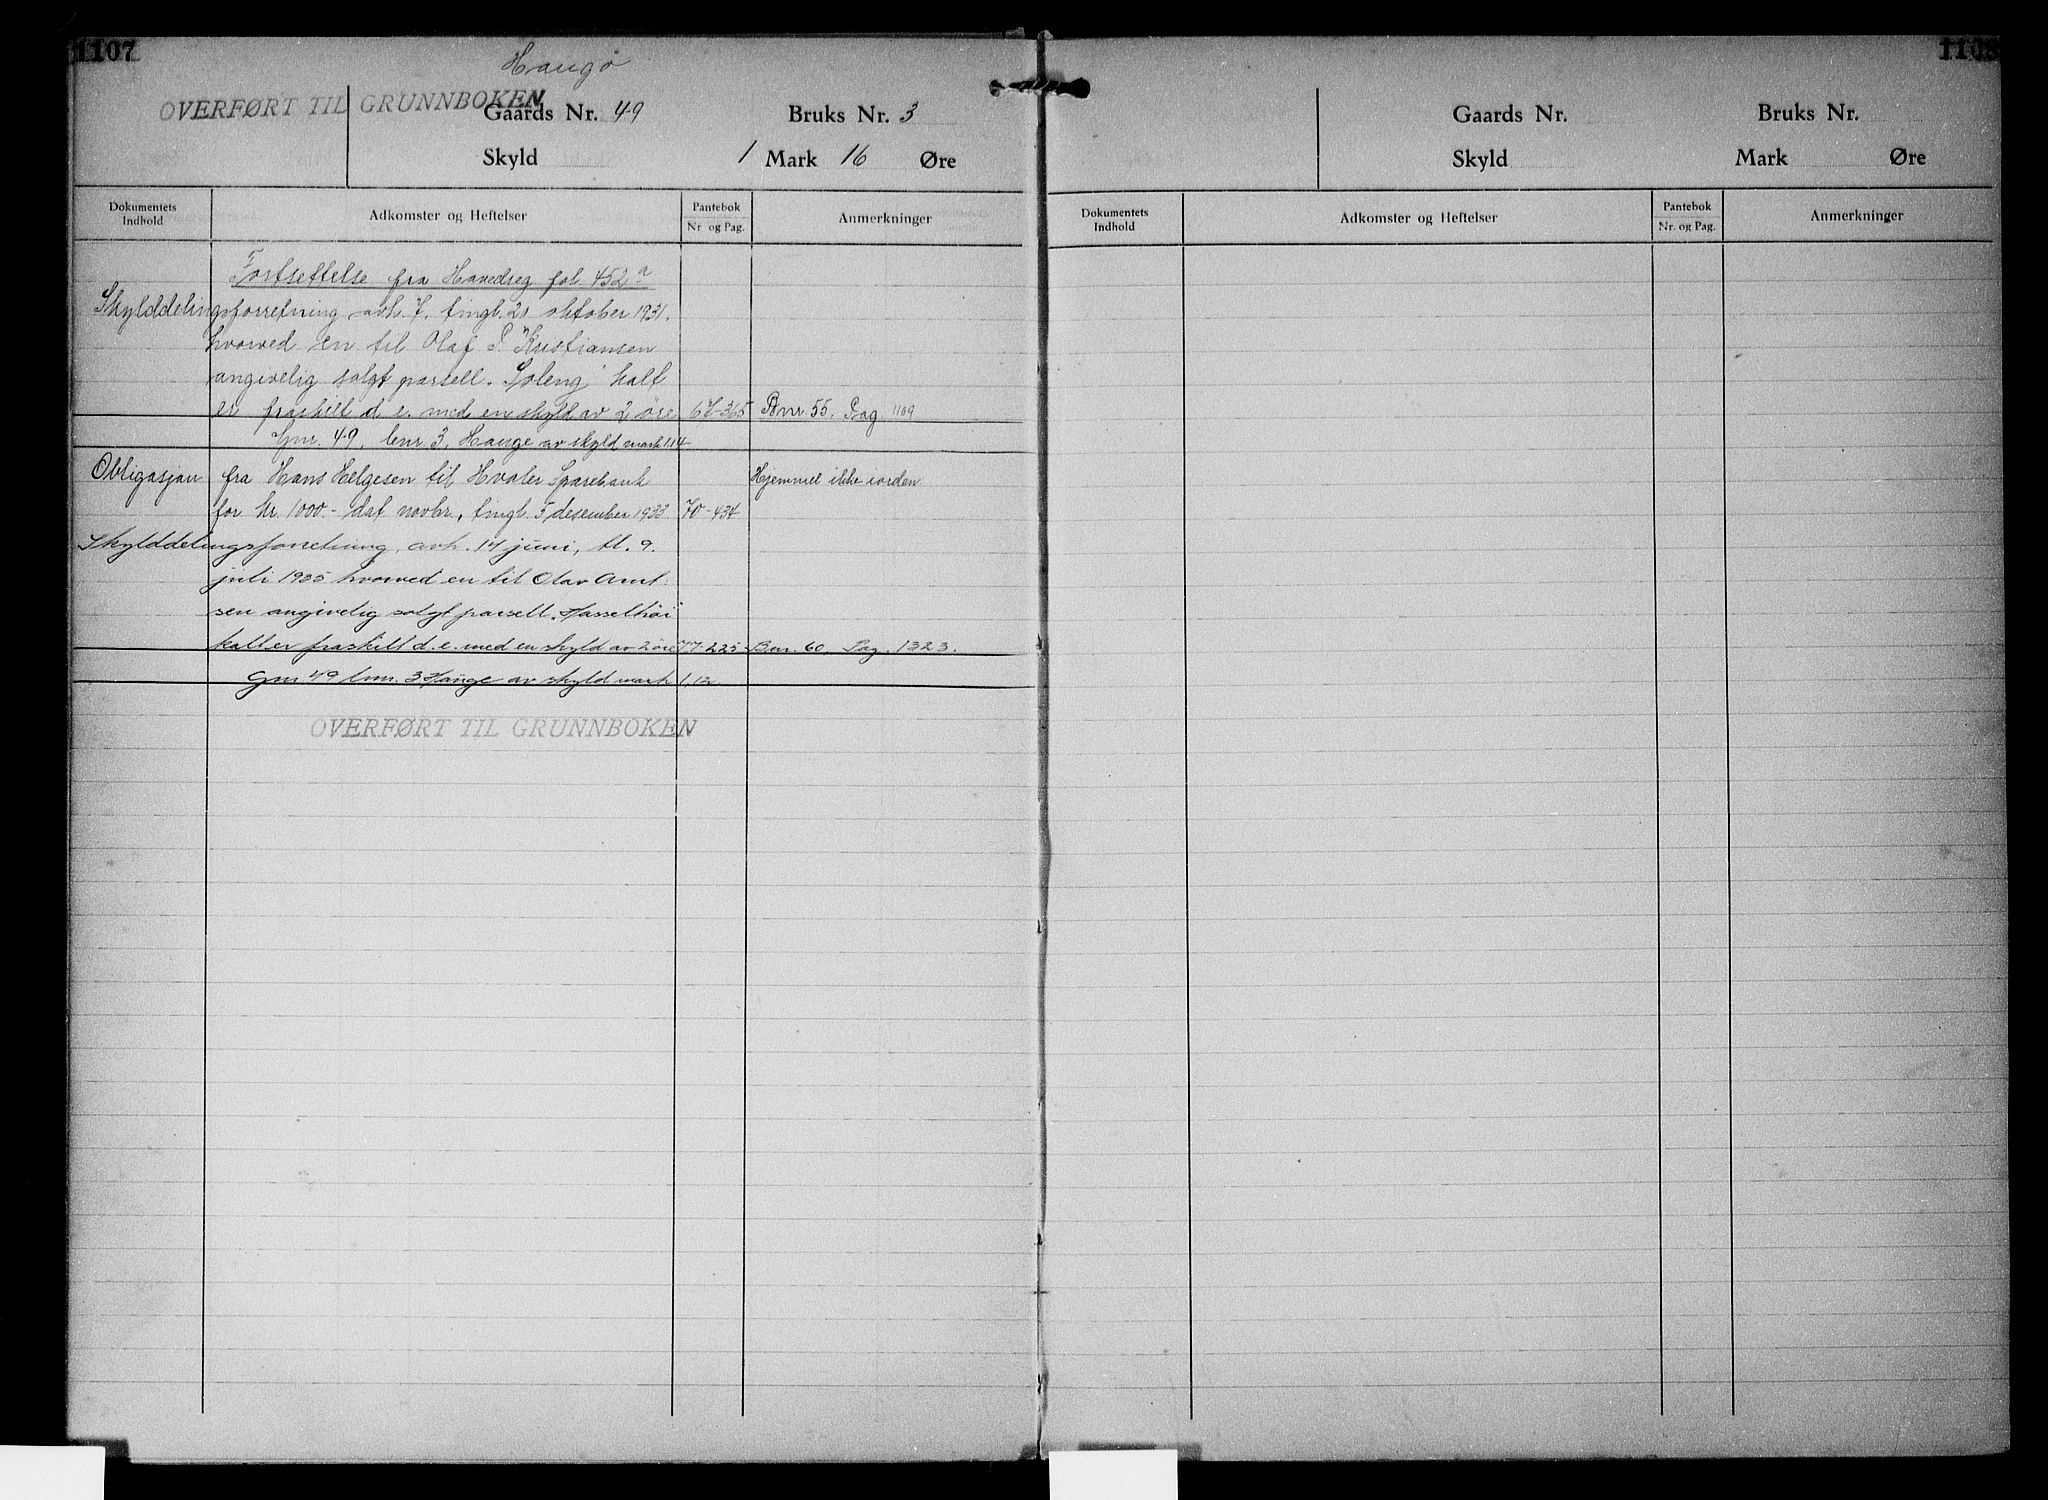 1107
Haugø
OVERFØRT TIL GRUNNBOKEN
Gaards Nr. 49 Bruks Nr. 3
Skyld 1 Mark 16 Øre
Dokumentets Indhold Adkomster og Heftelser Pantebok Nr. og Pag. Anmerkninger
Fortsettelse fra Hovedreg fol. 452 a
Skylddelingsforretning avh. 7. tingl. 20 oktober 1931.
hvorved en til Olaf P. Kristiansen
angivelig solgt parsell. Soleng kalt
er fraskilt d. e. med en skyld av 2 øre 67-365 Bnr. 55. Pag. 1109
Gnr. 49. bnr. 3, Hauge av skyld mark 1.14
Obligasjon fra Hans Helgesen til Hvaler Sparebank Hjemmel ikke iorden
for kr. 1000- dat novbr., tingl. 5 desember 1933 70-434
Skylddelingsforretning, avh. 14 juni, tl. 9.
juli 1935 hvorved en til Olav Arnt-
sen angivelig solgt parsell. Hasselhöi
kalt er fraskilt d. e. med en skyld av 2 öre 77-225- Bnr. 60. Pag. 1323.
Gnr. 49 bnr. 3 Hauge av skyld mark 1,12
OVERFØRT TIL GRUNNBOKEN
1108
Gaards Nr. Bruks Nr.
Skyld Mark Øre
Dokumentets Indhold Adkomster og Heftelser Pantebok Nr. og Pag. Anmerkninger